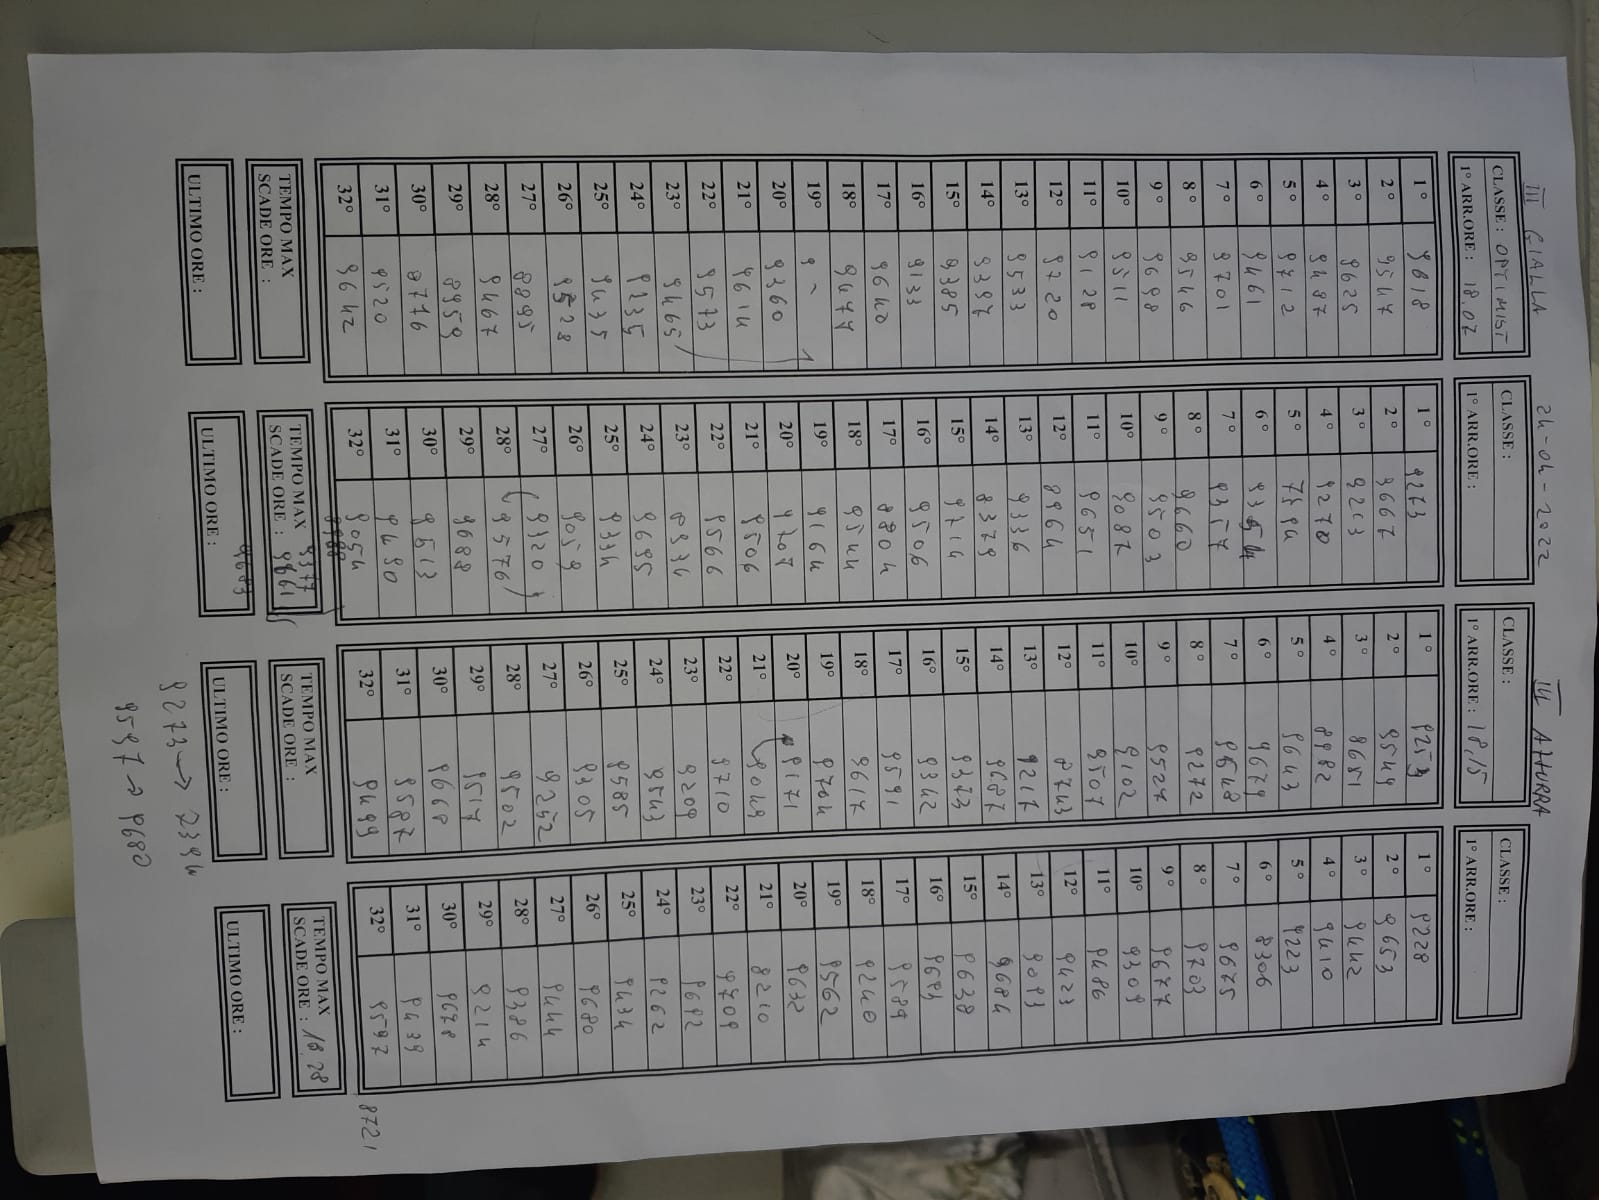 III GIALLA
CLASSE : OPTIMIST
1° ARR.ORE : 18.07
1° 9618
2° 9547
3° 9625
4° 9487
5° 9712
6° 9461
7° 9701
8° 9546
9° 9698
10° 9511
11° 9128
12° 9720
13° 9533
14° 9397
15° 9385
16° 9133
17° 9640
18° 9477
19° 9
20° 9360
21° 9614
22° 9573
23° 9465
24° 9235
25° 9435
26° 9528
27° 8895
28° 9467
29° 8959
30° 8776
31° 9520
32° 9642
TEMPO MAX
SCADE ORE :
ULTIMO ORE :
24-04-2022
CLASSE :
1° ARR.ORE :
1° 9273
2° 9667
3° 9213
4° 9270
5° 7394
6° 9354
7° 9357
8° 9660
9° 9503
10° 9087
11° 9651
12° 8964
13° 9336
14° 8379
15° 9714
16° 9506
17° 8804
18° 9544
19° 9164
20° 9707
21° 9506
22° 9566
23° 8934
24° 9695
25° 9334
26° 9059
27° 9320
28° 9576
29° 9688
30° 9513
31° 9490
32° 9054
8988
TEMPO MAX 9377
SCADE ORE : 9661
9683
ULTIMO ORE :
III AZZURRA
CLASSE :
1° ARR.ORE : 18,15
1° 9253
2° 9549
3° 8651
4° 8982
5° 9643
6° 9679
7° 9548
8° 9272
9° 9527
10° 9102
11° 9507
12° 8743
13° 9217
14° 9687
15° 9373
16° 9342
17° 9591
18° 9617
19° 9704
20° 9171
21° 9049
22° 9710
23° 9209
24° 9543
25° 9585
26° 9305
27° 9252
28° 9502
29° 9517
30° 9668
31° 9587
32° 9499
TEMPO MAX
SCADE ORE :
ULTIMO ORE :
9273 → 7394
9597 → 9680
CLASSE :
1° ARR.ORE :
1° 9228
2° 9653
3° 9442
4° 9410
5° 9223
6° 8306
7° 9675
8° 9703
9° 9677
10° 9309
11° 9486
12° 9423
13° 9093
14° 9684
15° 9638
16° 9693
17° 9589
18° 9240
19° 9562
20° 9632
21° 8210
22° 9709
23° 9692
24° 9262
25° 9434
26° 9680
27° 9444
28° 9386
29° 9214
30° 9678
31° 9439
32° 9597
8721
TEMPO MAX
SCADE ORE : 18,28
ULTIMO ORE :